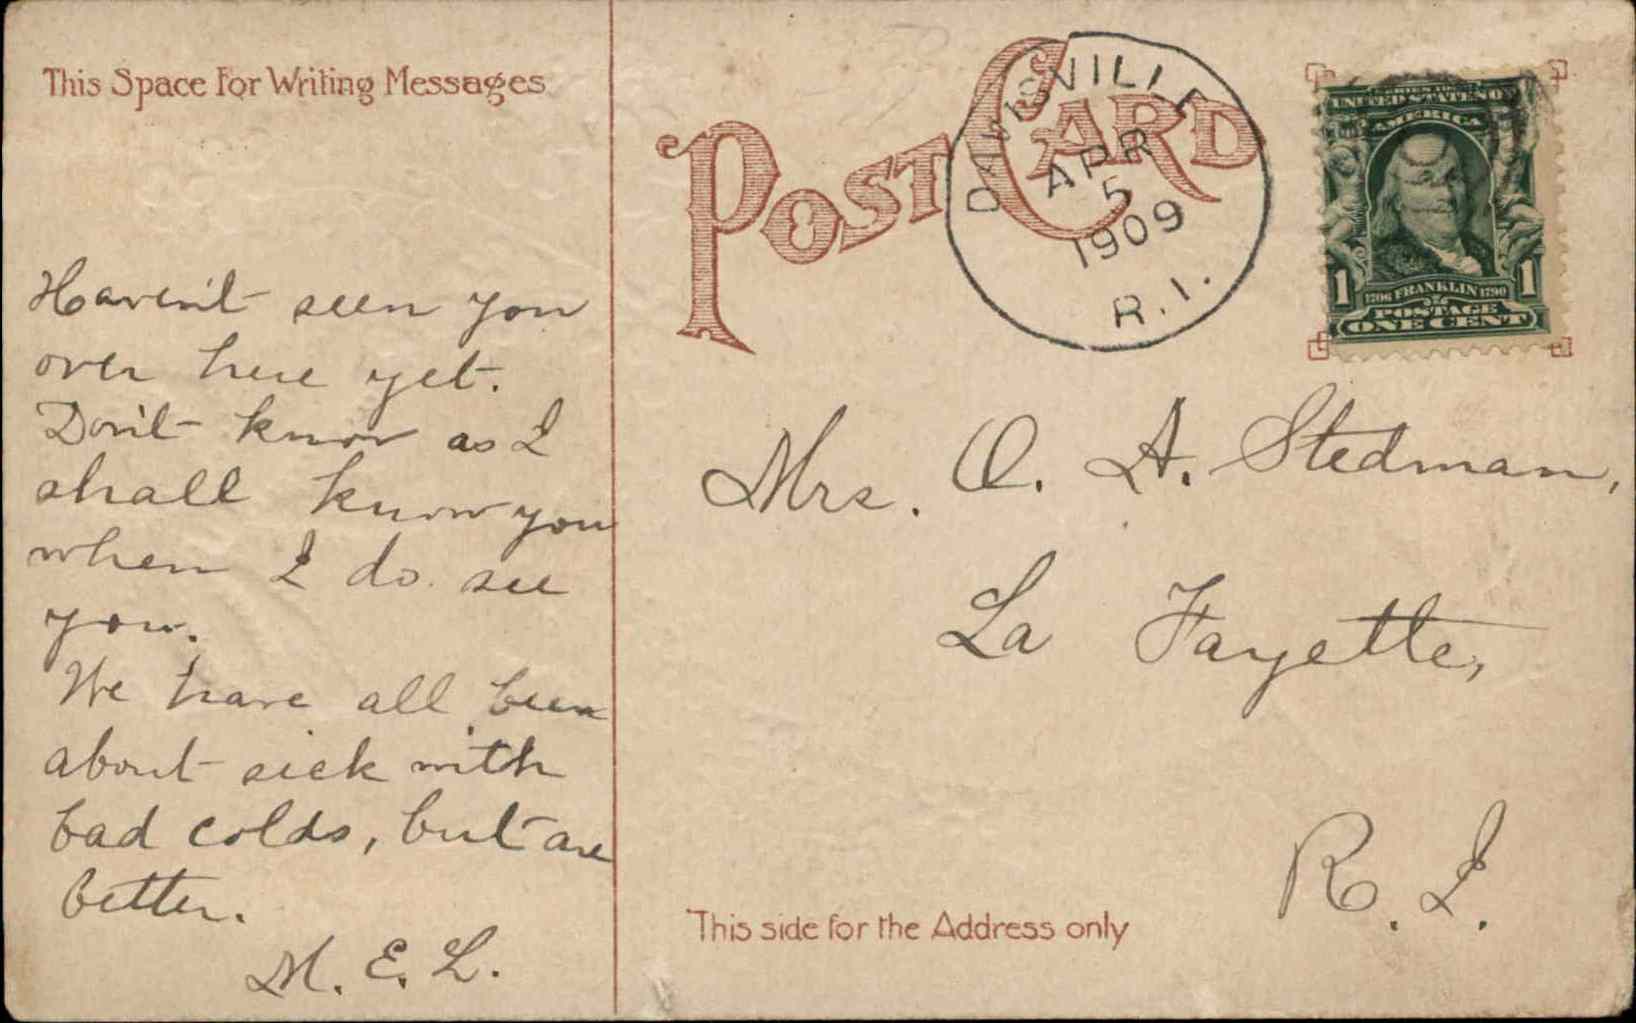 This Space For Writing Messages
Haven't seen you
over here yet.
Don't know as I
shall know you
when I do see
you.
We have all been
about sick with
bad colds, but are
better.
M. E. L.
POST CARD
DAVISVILLE
APR
5
1909
R.I.
UNITED STATES OF
AMERICA
1 1706 FRANKLIN 1790 1
POSTAGE
ONE CENT
Mrs. O. A. Stedman,
La Fayette,
R. I.
This side for the Address only